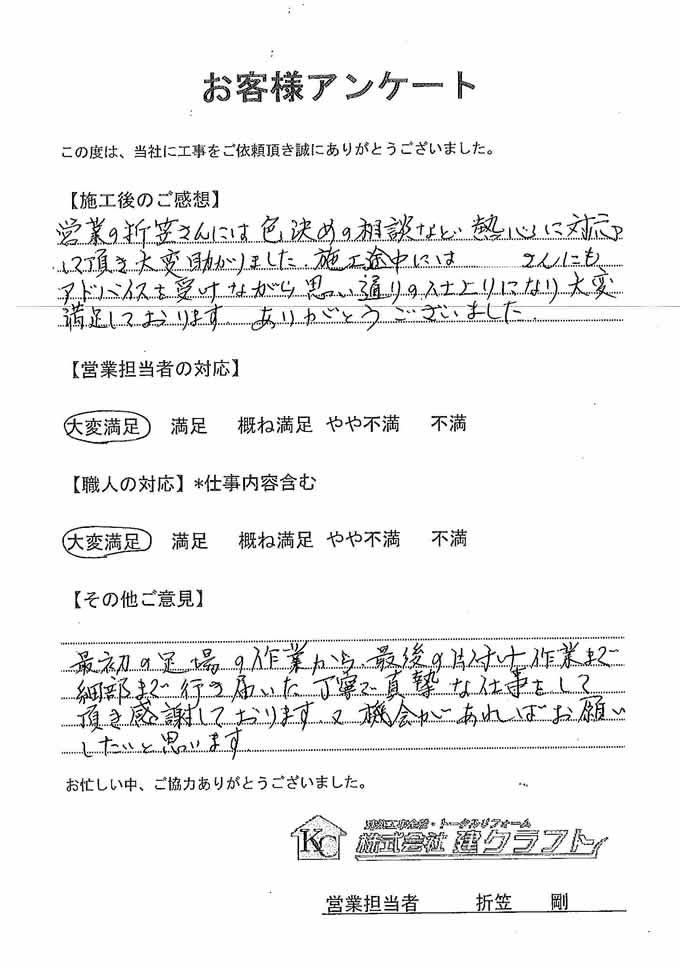 お客様アンケート
この度は、当社に工事をご依頼頂き誠にありがとうございました。
【施工後のご感想】
営業の折笠さんには色決めの相談など熱心に対応
して頂き大変助かりました。施工途中には さんにも
アドバイスを受けながら思い通りの仕上りになり大変
満足しております。ありがとうございました。
【営業担当者の対応】
大変満足 満足 概ね満足 やや不満 不満
【職人の対応】*仕事内容含む
大変満足 満足 概ね満足 やや不満 不満
【その他ご意見】
最初の足場の作業から、最後の片付け作業まで
細部まで行き届いた丁寧で真摯な仕事をして
頂き感謝しております。又機会があればお願い
したいと思います。
お忙しい中、ご協力ありがとうございました。
建築工事全般・トータルリフォーム
KC 株式会社 建クラフト
営業担当者 折笠 剛